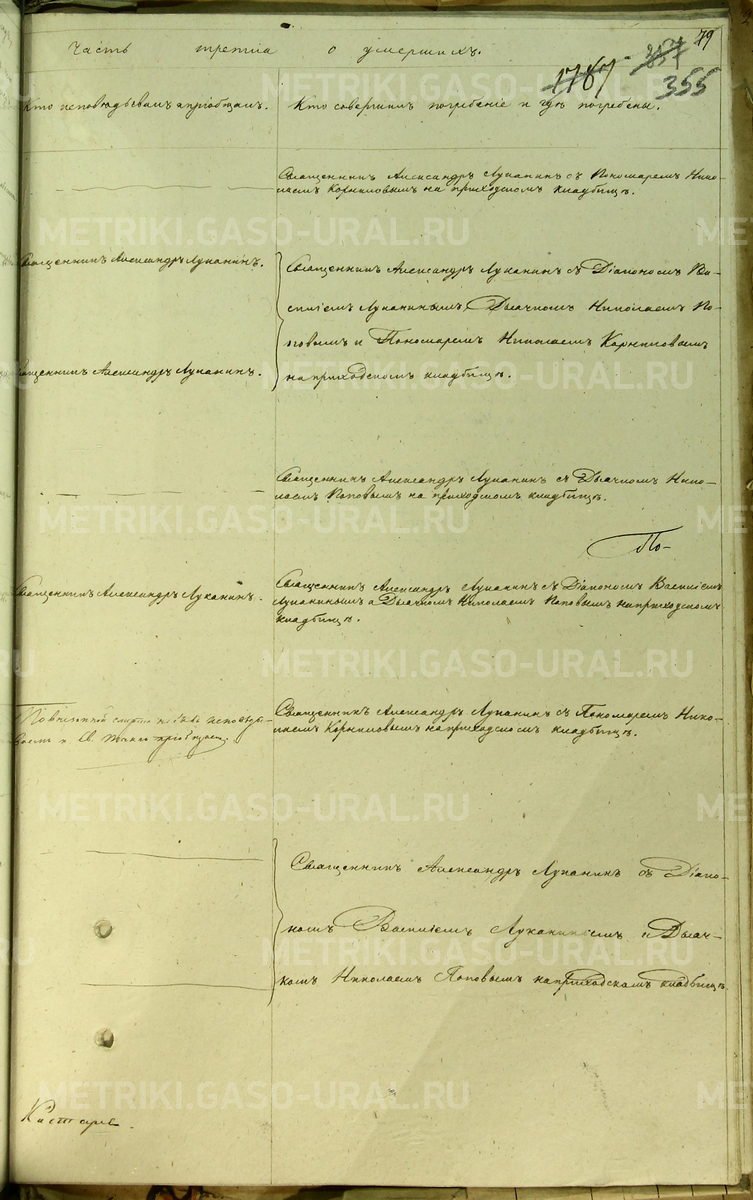 79
Часть третиа о умершихъ.
1787 357
355
Кто исповѣдывалъ и пріобщалъ.
Кто совершилъ погребеніе и гдѣ погребены.
Священникъ Александръ Луканинъ съ Пономаремъ Нико-
лаемъ Корниловымъ на приходскомъ кладбищѣ.
Священникъ Александръ Луканинъ.
Священникъ Александръ Луканинъ съ Діакономъ Ва-
силіемъ Луканинымъ, Дьячкомъ Николаемъ По-
повымъ и Пономаремъ Николаемъ Корниловымъ
на приходскомъ кладбищѣ.
Священникъ Александръ Луканинъ.
Священникъ Александръ Луканинъ съ Дьячкомъ Нико-
лаемъ Поповымъ на приходскомъ кладбищѣ.
По-
Священникъ Александръ Луканинъ.
Священникъ Александръ Луканинъ съ Діакономъ Василіемъ
Луканинымъ и Дьячкомъ Николаемъ Поповымъ на приходскомъ
кладбищѣ.
По внезапной смерти не
и Св. Таинъ
Священникъ Александръ Луканинъ съ Пономаремъ Нико-
лаемъ Корниловымъ на приходскомъ кладбищѣ.
Священникъ Александръ Луканинъ съ Діако-
номъ Василіемъ Луканинымъ и Дьяч-
комъ Николаемъ Поповымъ на приходскомъ кладбищѣ
METRIKI.GASO-URAL.RU